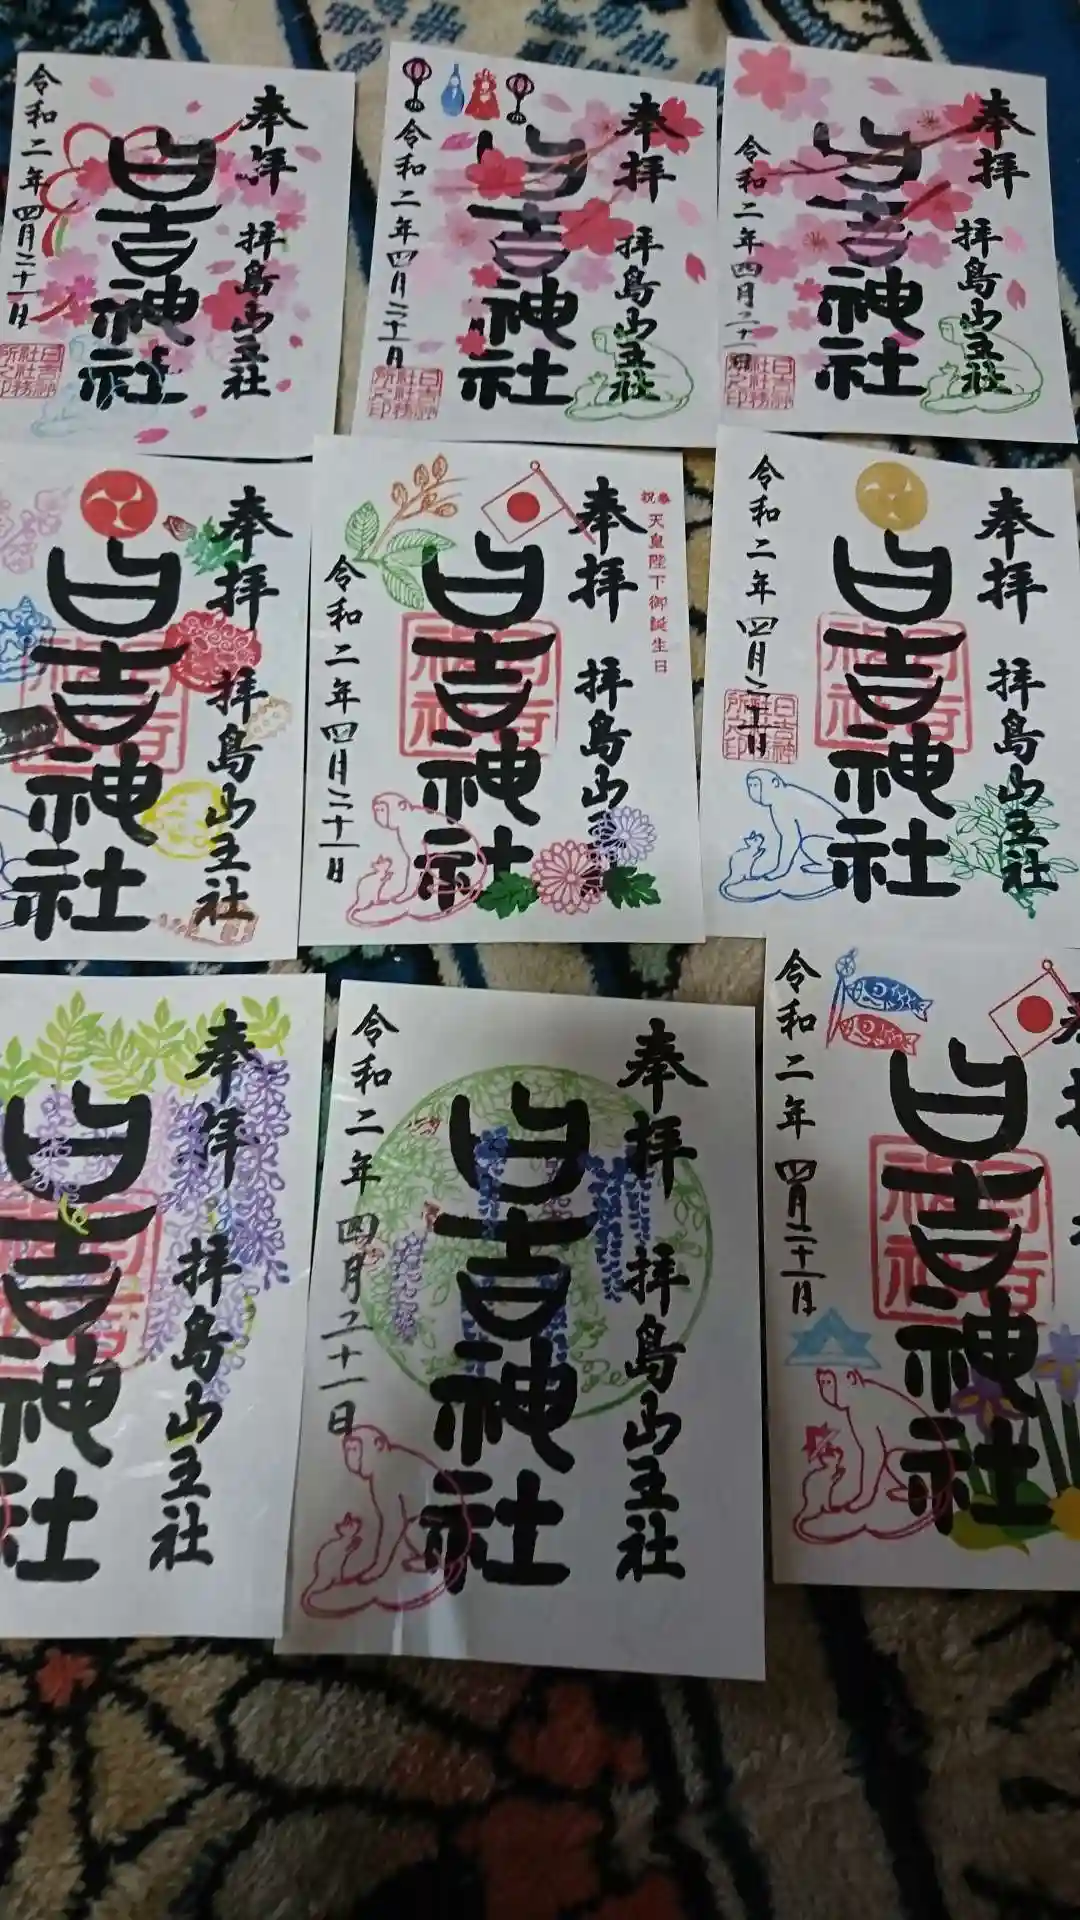 奉拝
拝島山王社
日吉神社
令和二年四月二十一日
日吉神
社社務
所之印
奉拝
拝島山王社
日吉神社
令和二年四月二十一日
日吉神
社社務
所之印
奉拝
拝島山王社
日吉神社
令和二年四月二十一日
日吉神
社社務
所之印
奉拝
拝島山王社
日吉神社
奉祝
天皇陛下御誕生日
奉拝
拝島山王社
日吉神社
令和二年四月二十一日
奉拝
拝島山王社
日吉神社
令和二年四月二十一日
日吉神
社社務
所之印
奉拝
拝島山王社
日吉神社
奉拝
拝島山王社
日吉神社
令和二年四月二十一日
日吉神社
令和二年四月二十一日